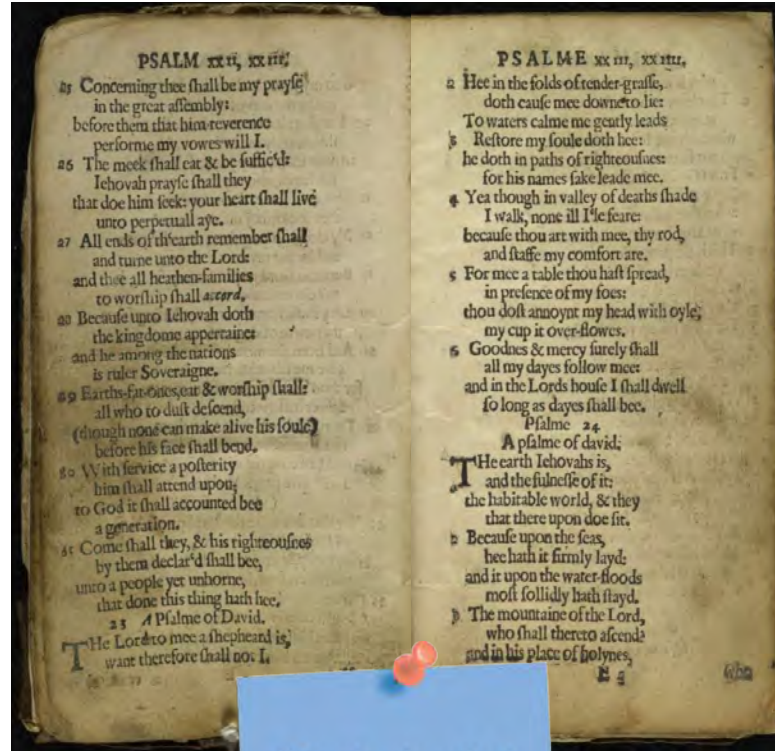 PSALM xxii, xxiii.
25 Concerning thee shall be my prayse
in the great assembly:
before them that him reverence
performe my vowes will I.
26 The meek shall eat & be suffic'd:
Iehovah prayse shall they
that doe him seek: your heart shall live
unto perpetuall aye.
27 All ends of th'earth remember shall
and turne unto the Lord:
and thee all heathen-families
to worship shall accord.
28 Because unto Iehovah doth
the kingdome appertaine:
and he among the nations
is ruler Soveraigne.
29 Earths-fat-ones, eat & worship shall:
all who to dust descend,
(though none can make alive his soule)
before his face shall bend.
30 With service a posterity
him shall attend upon;
to God it shall accounted bee
a generation.
31 Come shall they, & his righteousnes
by them declar'd shall bee,
unto a people yet unborne,
that done this thing hath hee.
23 A Psalme of David.
THe Lord to mee a shepheard is,
want therefore shall not I.
PSALME xxiii, xxiiii.
2 Hee in the folds of tender-grasse,
doth cause mee downe to lie:
To waters calme me gently leads
3 Restore my soule doth hee:
he doth in paths of righteousnes:
for his names sake leade mee.
4 Yea though in valley of deaths shade
I walk, none ill I'le feare:
because thou art with mee, thy rod,
and staffe my comfort are.
5 For mee a table thou hast spread,
in presence of my foes:
thou dost annoynt my head with oyle;
my cup it over-flowes.
6 Goodnes & mercy surely shall
all my dayes follow mee:
and in the Lords house I shall dwell
so long as dayes shall bee.
Psalme 24
A psalme of david.
THe earth Iehovahs is,
and the fulnesse of it:
the habitable world, & they
that there upon doe sit.
2 Because upon the seas,
hee hath it firmly layd:
and it upon the water-floods
most sollidly hath stayd.
3 The mountaine of the Lord,
who shall thereto ascend?
and in his place of holynes,
Who